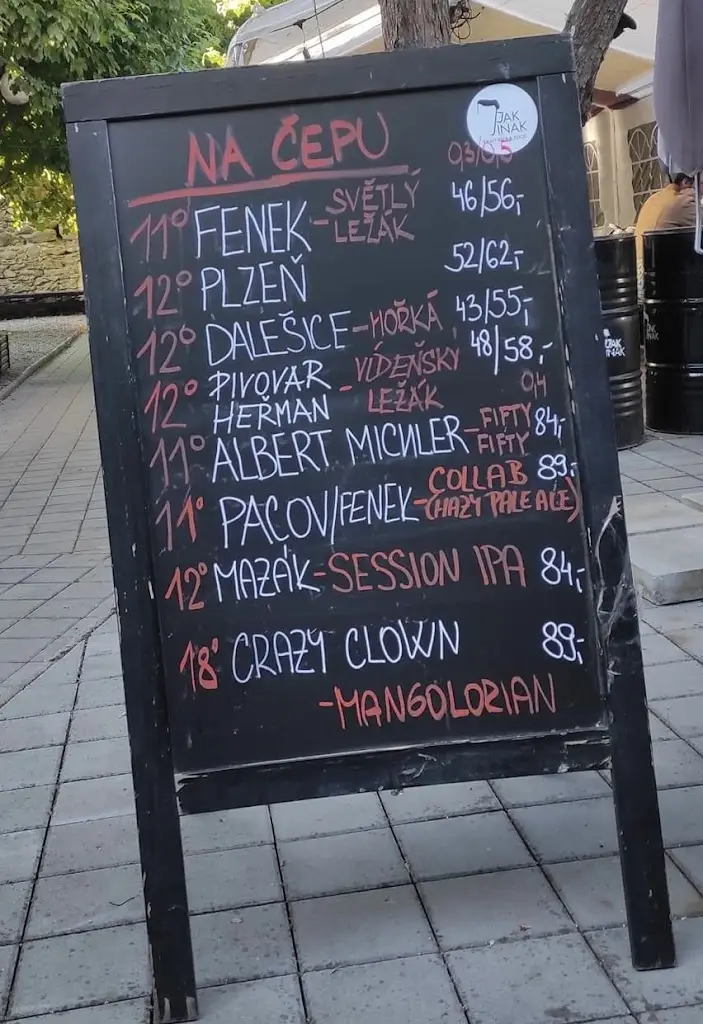 JAK
JINAK
NA ČEPU 0,3/0,5
11° FENEK - SVĚTLÝ LEŽÁK 46/56,-
12° PLZEŇ 52/62,-
12° DALEŠICE - HOŘKÁ 43/55,-
12° PIVOVAR HEŘMAN - VÍDEŇSKÝ LEŽÁK 48/58,-
0,4
11° ALBERT MICHLER - FIFTY FIFTY 84,-
11° PACOV/FENEK - COLLAB (HAZY PALE ALE) 89,-
12° MAZÁK - SESSION IPA 84,-
18° CRAZY CLOWN 89,-
- MANGOLORIAN
JAK
JINAK